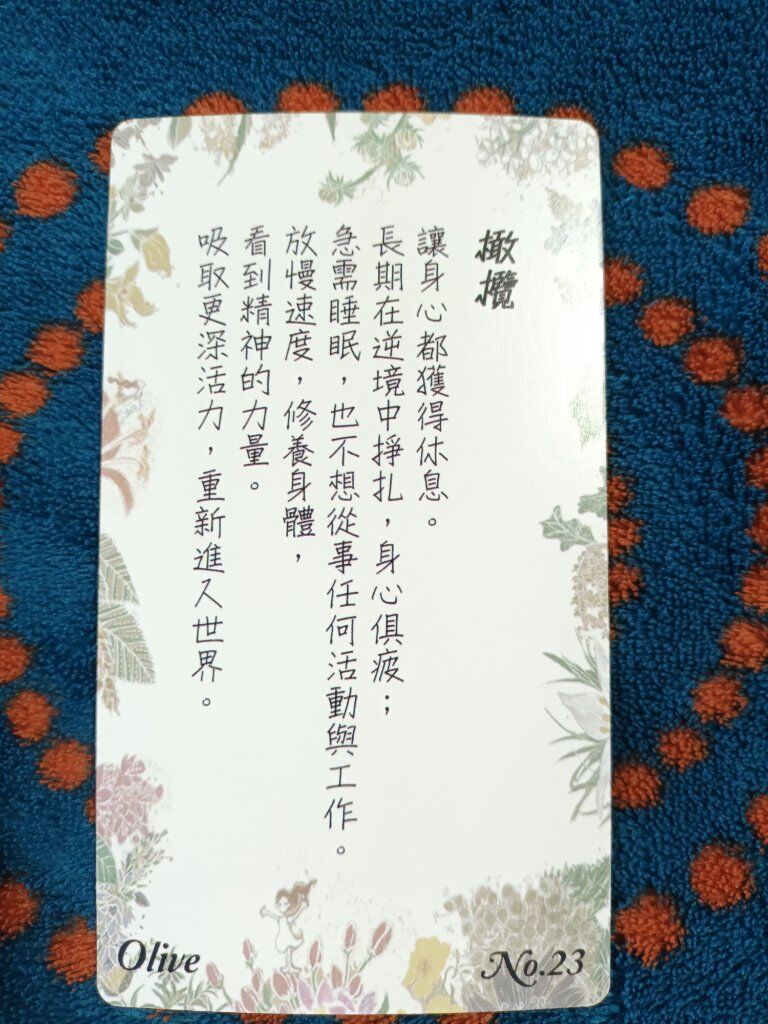 橄欖
讓身心都獲得休息。
長期在逆境中掙扎，身心俱疲；
急需睡眠，也不想從事任何活動與工作。
放慢速度，修養身體，
看到精神的力量。
吸取更深活力，重新進入世界。
Olive
No.23